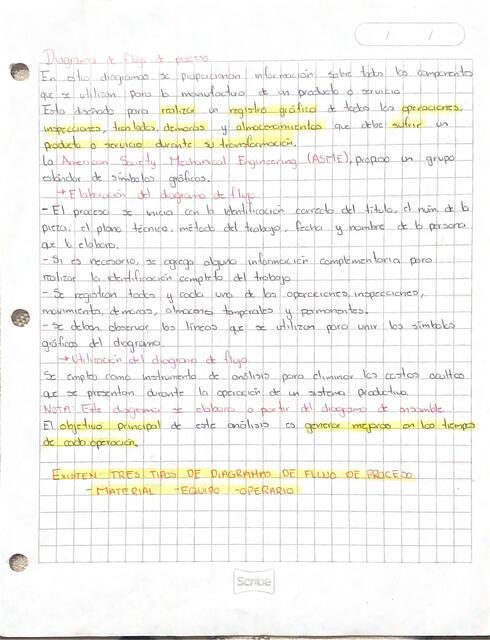 Diagrama de flujo de proceso
En este diagramas se proporcionan información sobre todos los componentes
que se utilizan para la manufactura de un producto o servicio
Esta diseñado para realizar un registro gráfico de todos las operaciones,
inspecciones, traslados, demoras y almacenamientos que debe sufrir un
producto o servicio durante su transformación.
La American Society Mechanical Engineering (ASME), propuso un grupo
estándar de simbolos gráficos.
→ Elaboración del diagrama de flujo
- El proceso se inicia con la identificación correcta del titulo, el núm de la
pieza, el plano técnico, método del trabajo, fecha y nombre de la persona
que lo elabora.
- Si es necesario, se agrega alguna información complementaria para
realizar la identificación completa del trabajo
- Se registran todos y cada uno de las operaciones, inspecciones,
movimiento, demoras, almacenes temporales y permanentes.
- Se deben observar las líneas que se utilizan para unir los simbolos
gráficos del diagrama.
→ Utilización del diagrama de flujo
Se emplea como instrumento de análisis para eliminar los costos ocultos
que se presentan durante la operación de un sistema productivo.
NOTA: Este diagrama se elabora a partir del diagrama de ensamble
El objetivo principal de este análisis es generar mejoras en los tiempos
de cada operación.
EXISTEN TRES TIPOS DE DIAGRAMAS DE FLUJO DE PROCESO
- MATERIAL -EQUIPO -OPERARIO
Scribe